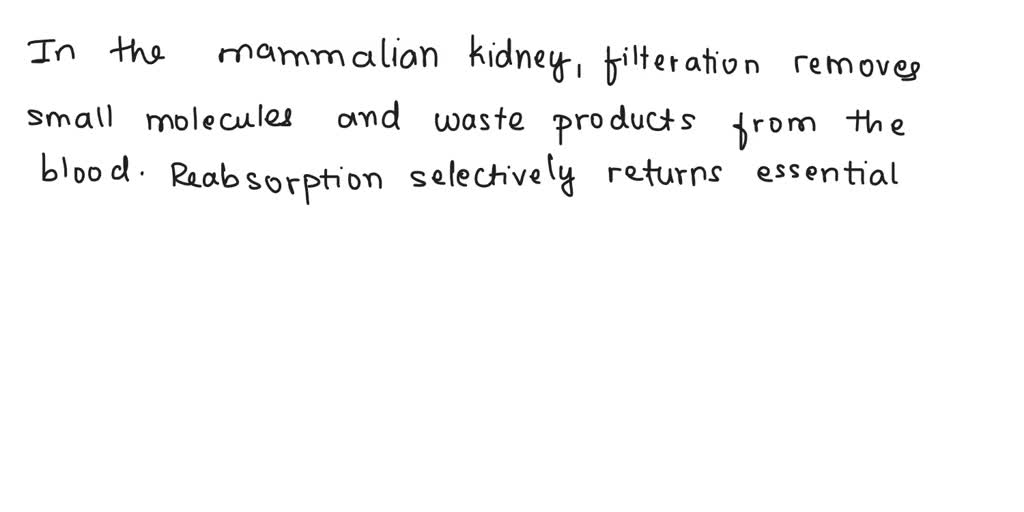 In the mammalian kidney, filteration removes
small molecules and waste products from the
blood. Reabsorption selectively returns essential